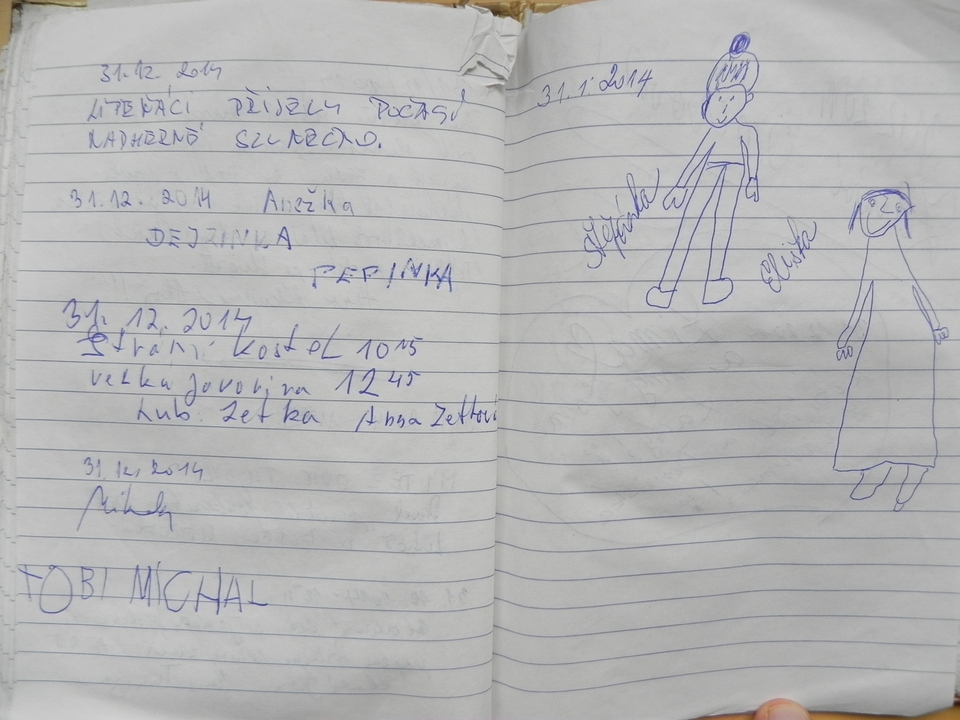 31.12. 2014
POČASÍ
31.12. 2014 Anežka
DEJZINKA
PEPINKA
31. 12. 2014
Strání kostel 10 15
velka javorina 12 45
Lub. Zetka Anna Zetková
31.12. 2014
TOBI MICHAL
31.1.2014
Štěpánka
Eliška